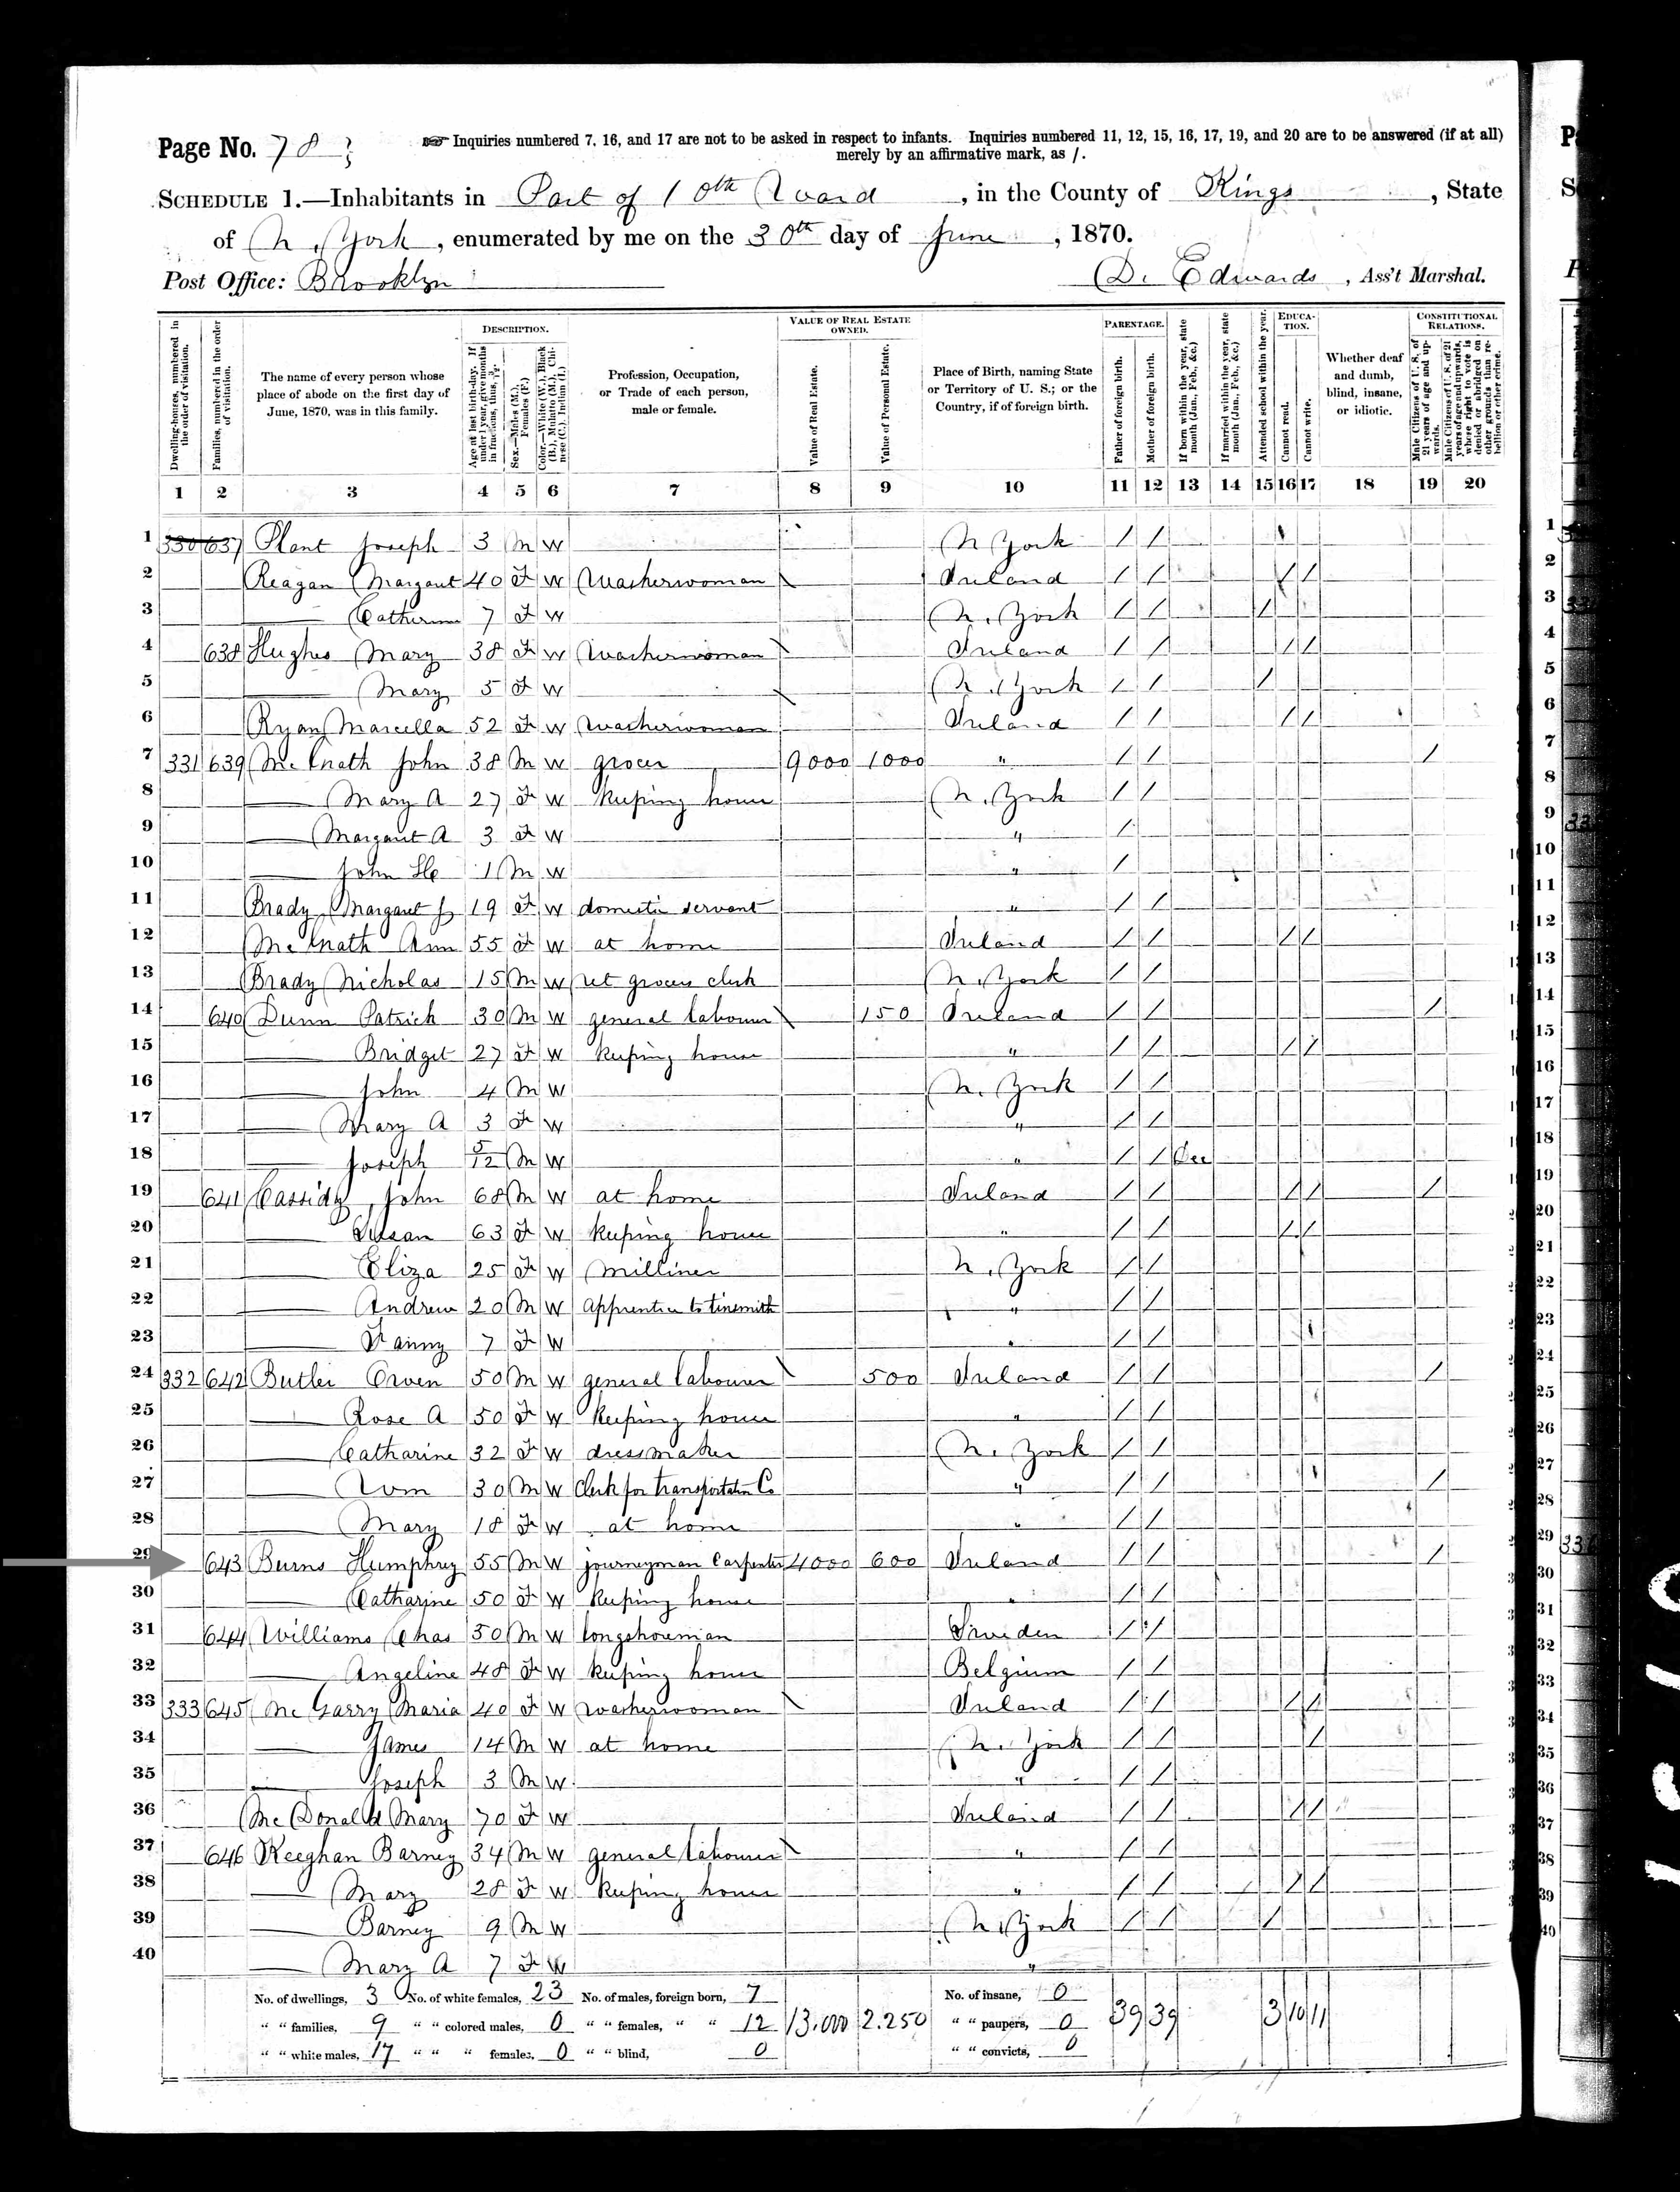 Page No. 78
Inquiries numbered 7, 16, and 17 are not to be asked in respect to infants. Inquiries numbered 11, 12, 15, 16, 17, 19, and 20 are to be answered (if at all)
merely by an affirmative mark, as /.
SCHEDULE 1.—Inhabitants in Part of 10th Ward, in the County of Kings, State
of N. York, enumerated by me on the 30th day of June, 1870.
Post Office: Brooklyn D. Edwards, Ass't Marshal.
Dwelling-houses, numbered in the order of visitation.
Families, numbered in the order of visitation.
The name of every person whose place of abode on the first day of June, 1870, was in this family.
DESCRIPTION.
Age at last birth-day. If under 1 year, give months in fractions, thus, 3/12.
Sex.—Males (M.), Females (F.)
Color.—White (W.), Black (B.), Mulatto (M.), Chinese (C.), Indian (I.)
Profession, Occupation, or Trade of each person, male or female.
VALUE OF REAL ESTATE OWNED.
Value of Real Estate.
Value of Personal Estate.
Place of Birth, naming State or Territory of U. S.; or the Country, if of foreign birth.
PARENTAGE.
Father of foreign birth.
Mother of foreign birth.
If born within the year, state month (Jan., Feb., &c.)
If married within the year, state month (Jan., Feb., &c.)
Attended school within the year.
EDUCATION.
Cannot read.
Cannot write.
Whether deaf and dumb, blind, insane, or idiotic.
CONSTITUTIONAL RELATIONS.
Male Citizens of U. S. of 21 years of age and upwards.
Male Citizens of U. S. of 21 years of age and upwards, whose right to vote is denied or abridged on other grounds than rebellion or other crime.
1 2 3 4 5 6 7 8 9 10 11 12 13 14 15 16 17 18 19 20
1 330 637 Plant Joseph 3 M W N York / /
2 Reagan Margaret 40 F W Washerwoman Ireland / / / /
3 — Catherine 7 F W N. York / / /
4 638 Hughes Mary 38 F W Washerwoman Ireland / / / /
5 — Mary 5 F W N. York / / /
6 Ryan Marcella 52 F W Washerwoman Ireland / / / /
7 331 639 Mc Grath John 38 M W grocer 9000 1000 " / / /
8 — Mary A 27 F W keeping house N. York / /
9 — Margaret A 3 F W " /
10 — John H 1 M W " /
11 Brady Margaret J 19 F W domestic servant " / /
12 Mc Grath Ann 55 F W at home Ireland / / / /
13 Brady Nicholas 15 M W ret grocers clerk N. York / /
14 640 Dunn Patrick 30 M W general labourer 150 Ireland / / /
15 — Bridget 27 F W keeping house " / / / /
16 — John 4 M W N. York / /
17 — Mary A 3 F W " / /
18 — Joseph 5/12 M W " / / Dec
19 641 Cassidy, John 68 M W at home Ireland / / / / /
20 — Susan 63 F W keeping house " / / / /
21 — Eliza 25 F W Milliner N. York / /
22 — Andrew 20 M W Apprentice to tinsmith " / /
23 — Fanny 7 F W " / /
24 332 642 Butler Owen 50 M W general labourer 500 Ireland / / /
25 — Rose A 50 F W keeping house " / /
26 — Catharine 32 F W dressmaker N. York / /
27 — Wm 30 M W Clerk for transportation Co " / / /
28 — Mary 18 F W at home " / /
29 643 Burns Humphrey 55 M W journeyman Carpenter 4000 600 Ireland / / /
30 — Catharine 50 F W keeping house " / /
31 644 Williams Chas 50 M W longshoreman Sweden / /
32 — Angeline 48 F W keeping house Belgium / /
33 333 645 Mc Garry Maria 40 F W Washerwoman Ireland / / / /
34 — James 14 M W at home N. York / / /
35 — Joseph 3 M W " / /
36 Mc Donald Mary 70 F W Ireland / / / /
37 646 Keeghan Barney 34 M W general labourer " / /
38 — Mary 28 F W keeping house " / / / /
39 — Barney 9 M W N. York / / /
40 — Mary A 7 F W "
No. of dwellings, 3 No. of white females, 23 No. of males, foreign born, 7 No. of insane, 0
" " families, 9 " " colored males, 0 " " females, " " 12 13,000 2.250 " " paupers, 0 39 39 3 10 11
" " white males, 17 " " " females, 0 " " blind, 0 " " convicts, 0